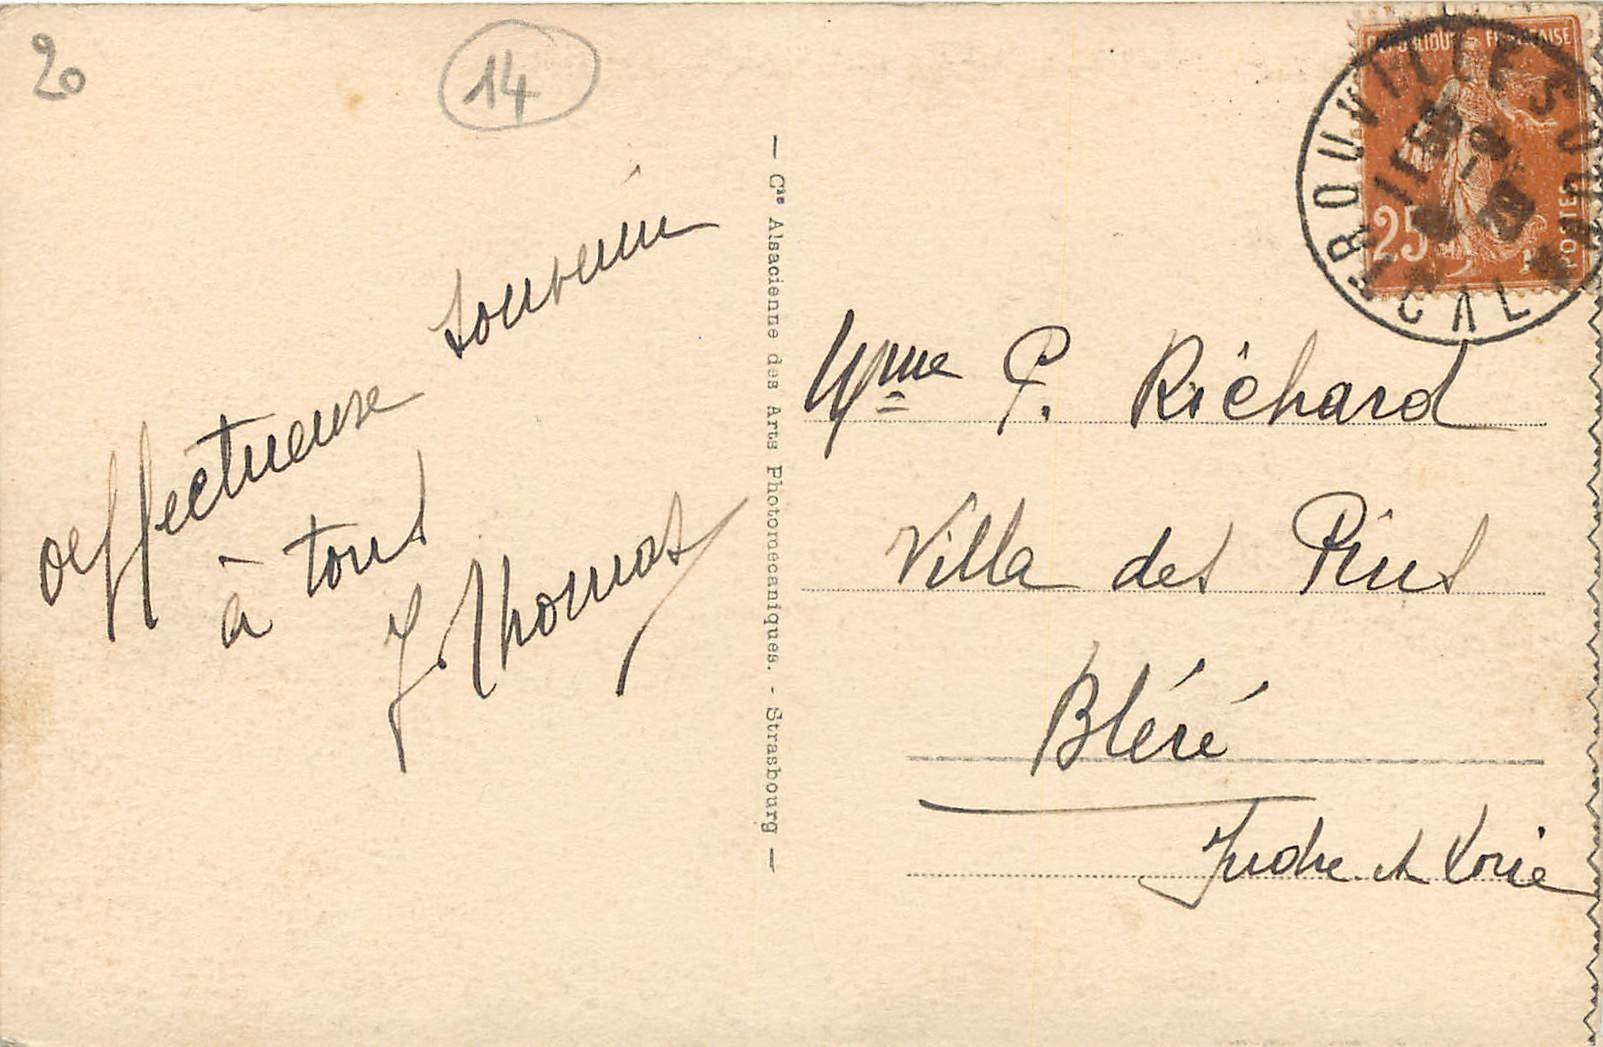 20
14
affectueux souvenir
à tous
J Thomas
— Cie Alsacienne des Arts Photomécaniques. - Strasbourg —
RÉPUBLIQUE FRANÇAISE
25
POSTES
TROUVILLE
CALVADOS
29
Mme P. Richard
Villa des Pins
Bléré
Indre et Loire